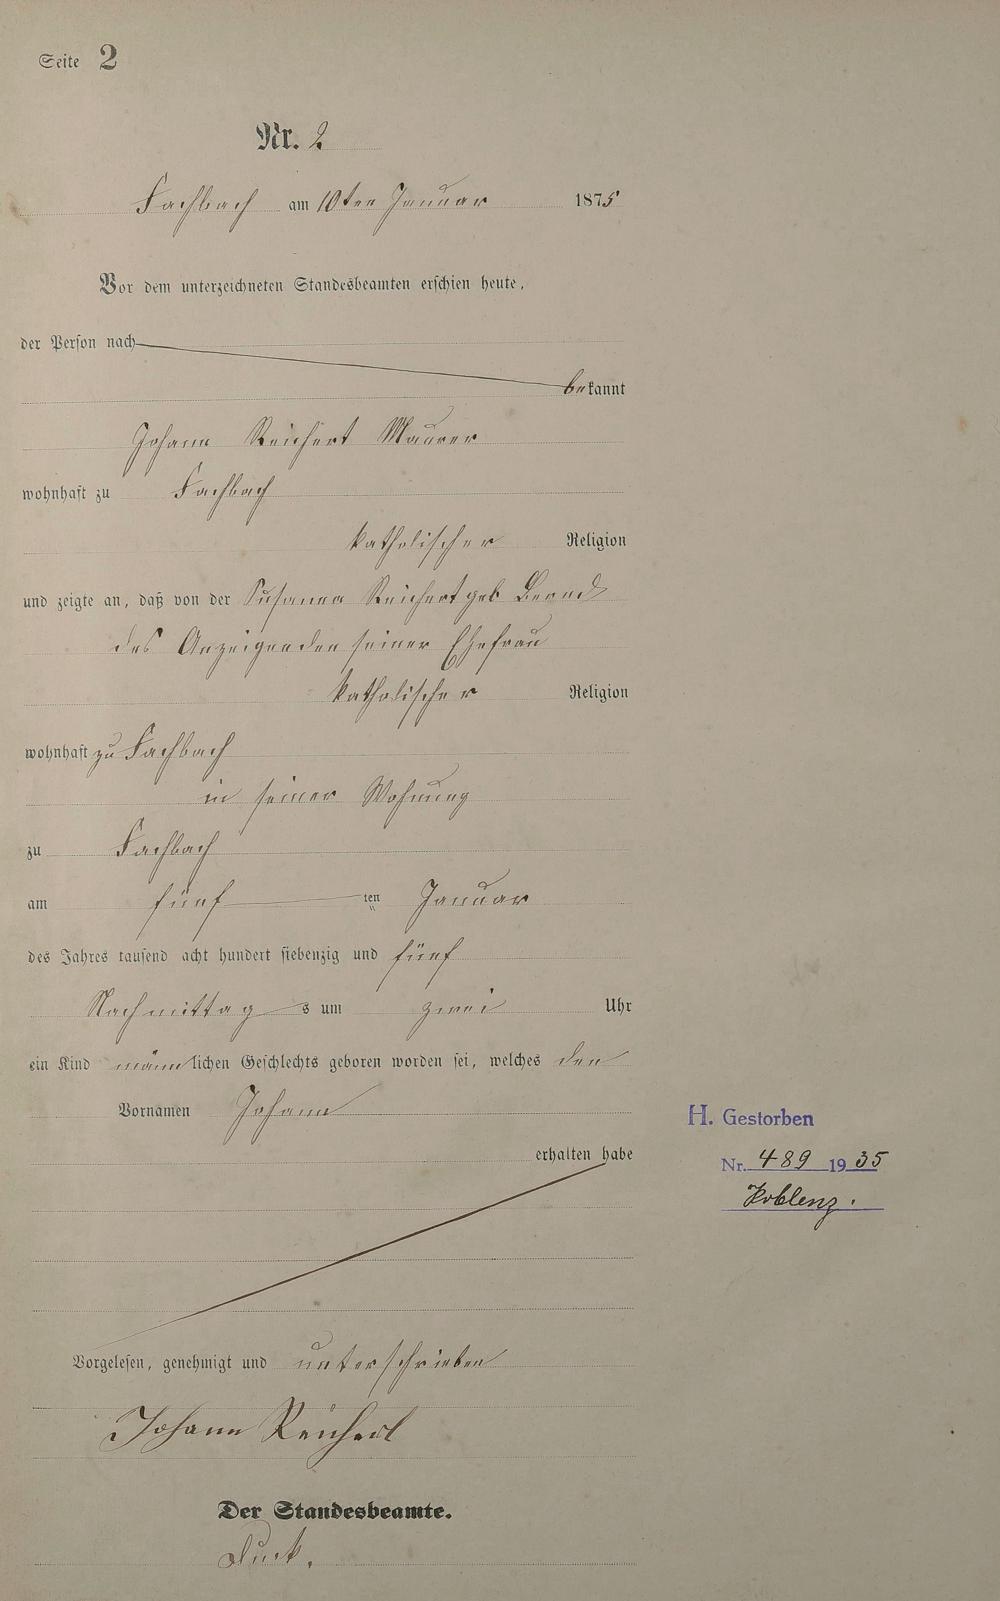 Seite 2
Nr. 2
Fachbach am 10ten Januar 1875
Vor dem unterzeichneten Standesbeamten erschien heute,
der Person nach
bekannt
Johann Reichert Maurer
wohnhaft zu Fachbach
katholischer Religion
und zeigte an, daß von der Susanna Reichert geb Bernd
des Anzeigenden seiner Ehefrau
katholischer Religion
wohnhaft zu Fachbach
in seiner Wohnung
zu Fachbach
am fünf ten Januar
des Jahres tausend acht hundert siebenzig und fünf
Nachmittag s um zwei Uhr
ein Kind männlichen Geschlechts geboren worden sei, welches den
Vornamen Johann
erhalten habe
H. Gestorben
Nr. 489 1935
Koblenz.
Vorgelesen, genehmigt und unterschrieben
Johann Reichert
Der Standesbeamte.